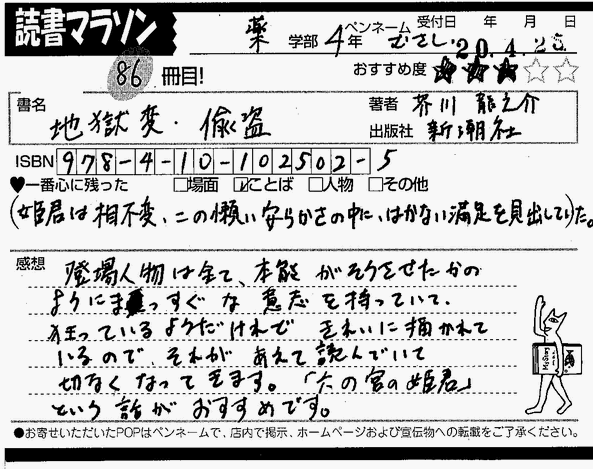 読書マラソン
薬 学部 4年 ペンネーム むさし 受付日 年 月 日
20.4.25
86 冊目! おすすめ度 ★★★☆☆
書名 地獄変・偸盗 著者 芥川龍之介
出版社 新潮社
ISBN 978-4-10-102502-5
♥一番心に残った □場面 ☑ことば □人物 □その他
(姫君は相不変、この懶い安らかさの中に、はかない満足を見出していた。
感想 登場人物は全て、本能がそうさせたかの
ようにまっすぐな意志を持っていて、
狂っているようだけれできれいに描かれて
いるので、それがあえて読んでいて
切なくなってきます。「六の宮の姫君」
という話がおすすめです。
●お寄せいただいたPOPはペンネームで、店内で掲示、ホームページおよび宣伝物への転載をご了承ください。